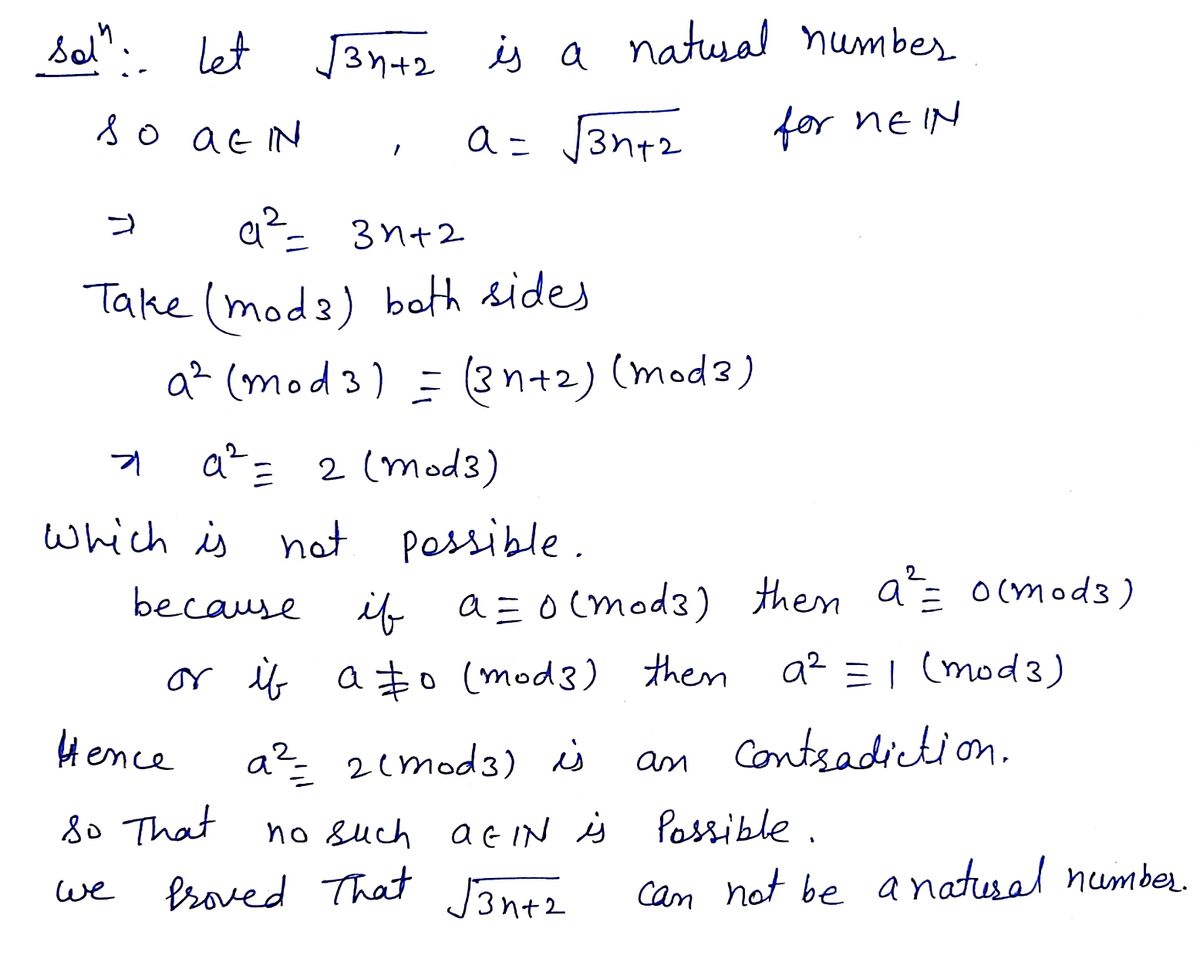 Solⁿ:- let √3n+2 is a natural number
so a∈ℕ , a = √3n+2 for n∈ℕ
⇒ a² = 3n+2
Take (mod3) both sides
a² (mod3) ≡ (3n+2) (mod3)
⇒ a² ≡ 2 (mod3)
Which is not possible.
because if a ≡ 0(mod3) then a² ≡ 0(mod3)
or if a ≢ 0 (mod3) then a² ≡ 1 (mod3)
Hence a² ≡ 2(mod3) is an Contradiction.
So That no such a∈ℕ is Possible.
we Proved That √3n+2 can not be a natural number.